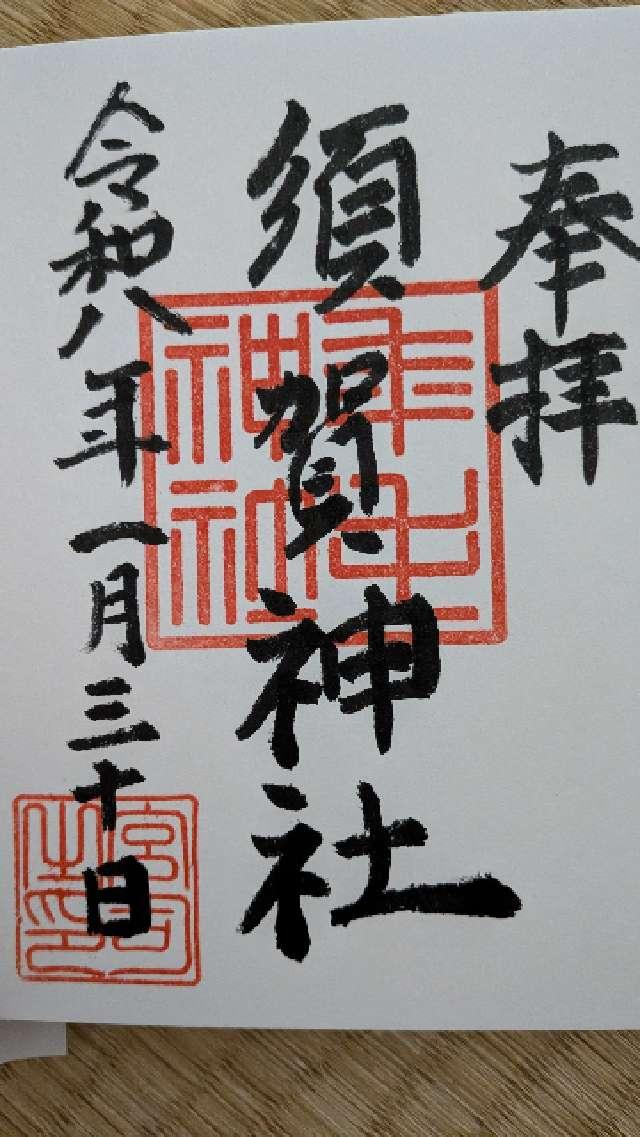 奉拝
須賀神社
令和八年一月三十日
宮司之印